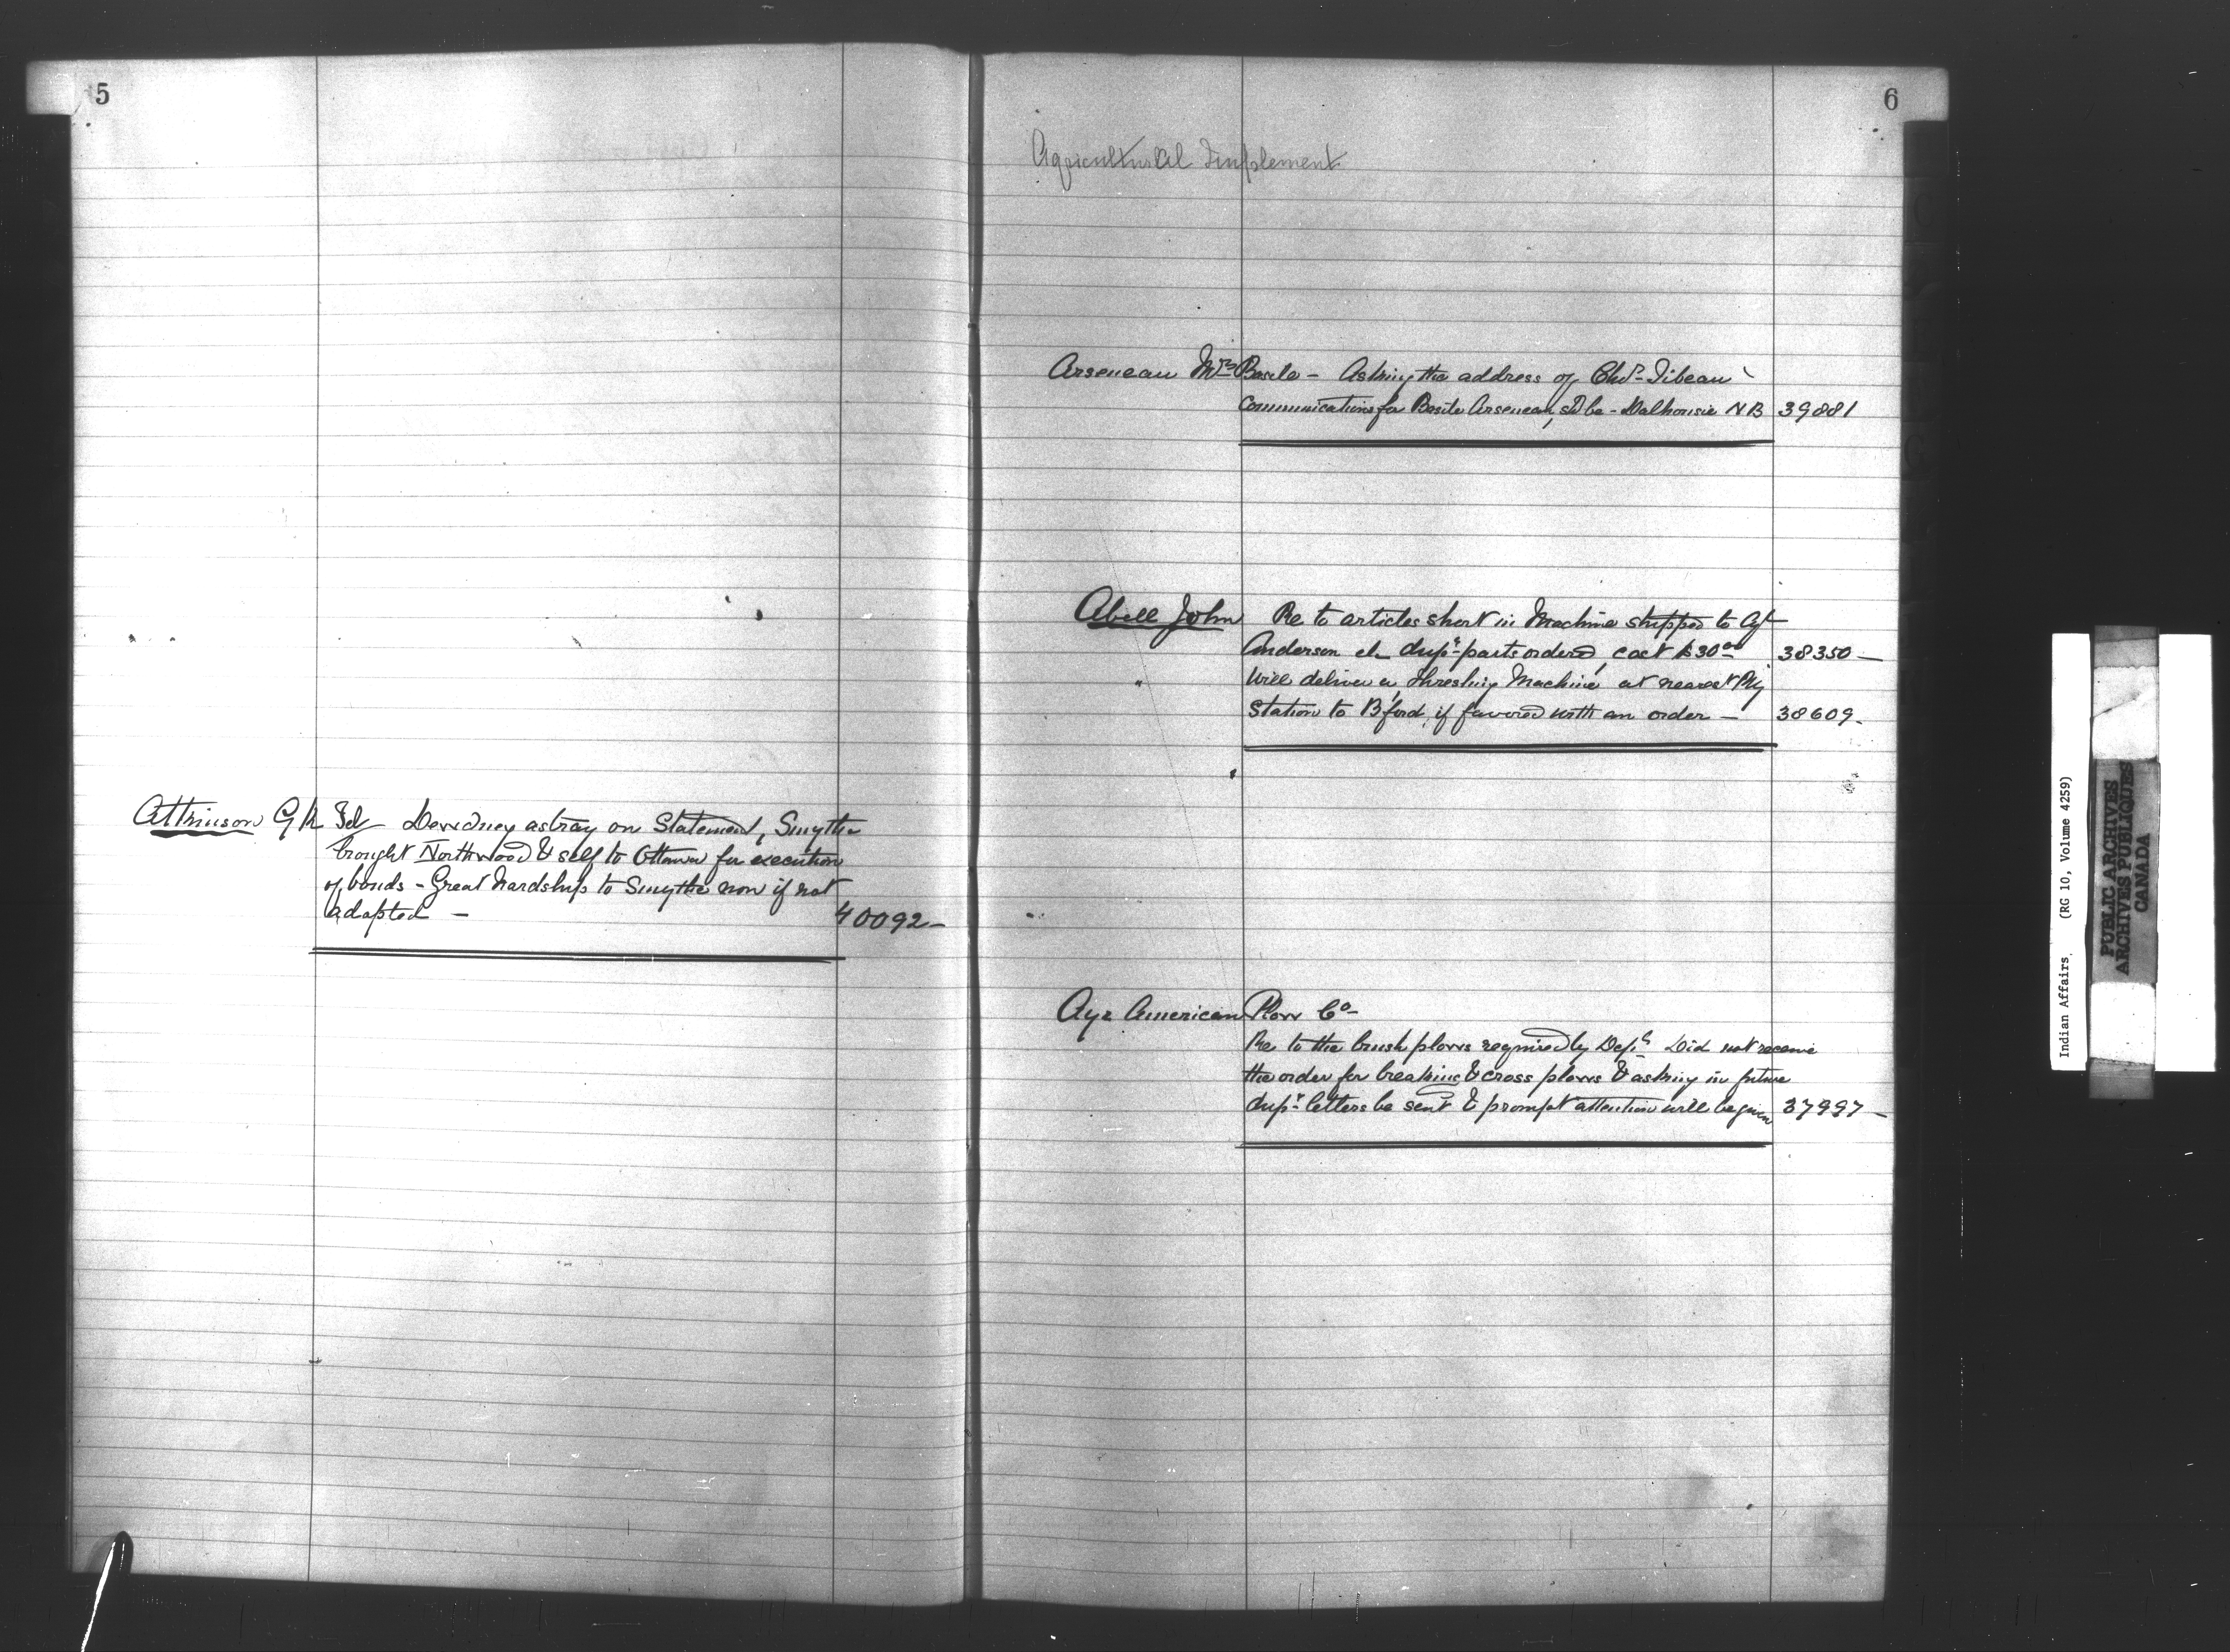 5
Atkinson G R Tel — Dewdney astray on Statement, Smythe
brought Northwood & self to Ottawa for execution
of bonds - Great hardship to Smythe now if not
adopted — 40092 —
6
Agricultural Implement
Arseneau Mrs Basile — Asking the address of Chas Gibeau
Communications for Basile Arseneau, shd be - Dalhousie NB 39881
Abell John Re to articles short in Machine shipped to Agt
Anderson dupe parts ordered, cost $30.00 38350 —
" Will deliver a threshing Machine at nearest Rly
Station to B'ford, if favored with an order — 38609 -
Ayr American Plow Co -
Re to the brush plows required by Dept. Did not receive
the order for breaking & cross plows & asking in future
dupe letters be sent & prompt attention will be given 37997 —
Indian Affairs. (RG 10, Volume 4259)
PUBLIC ARCHIVES
ARCHIVES PUBLIQUES
CANADA